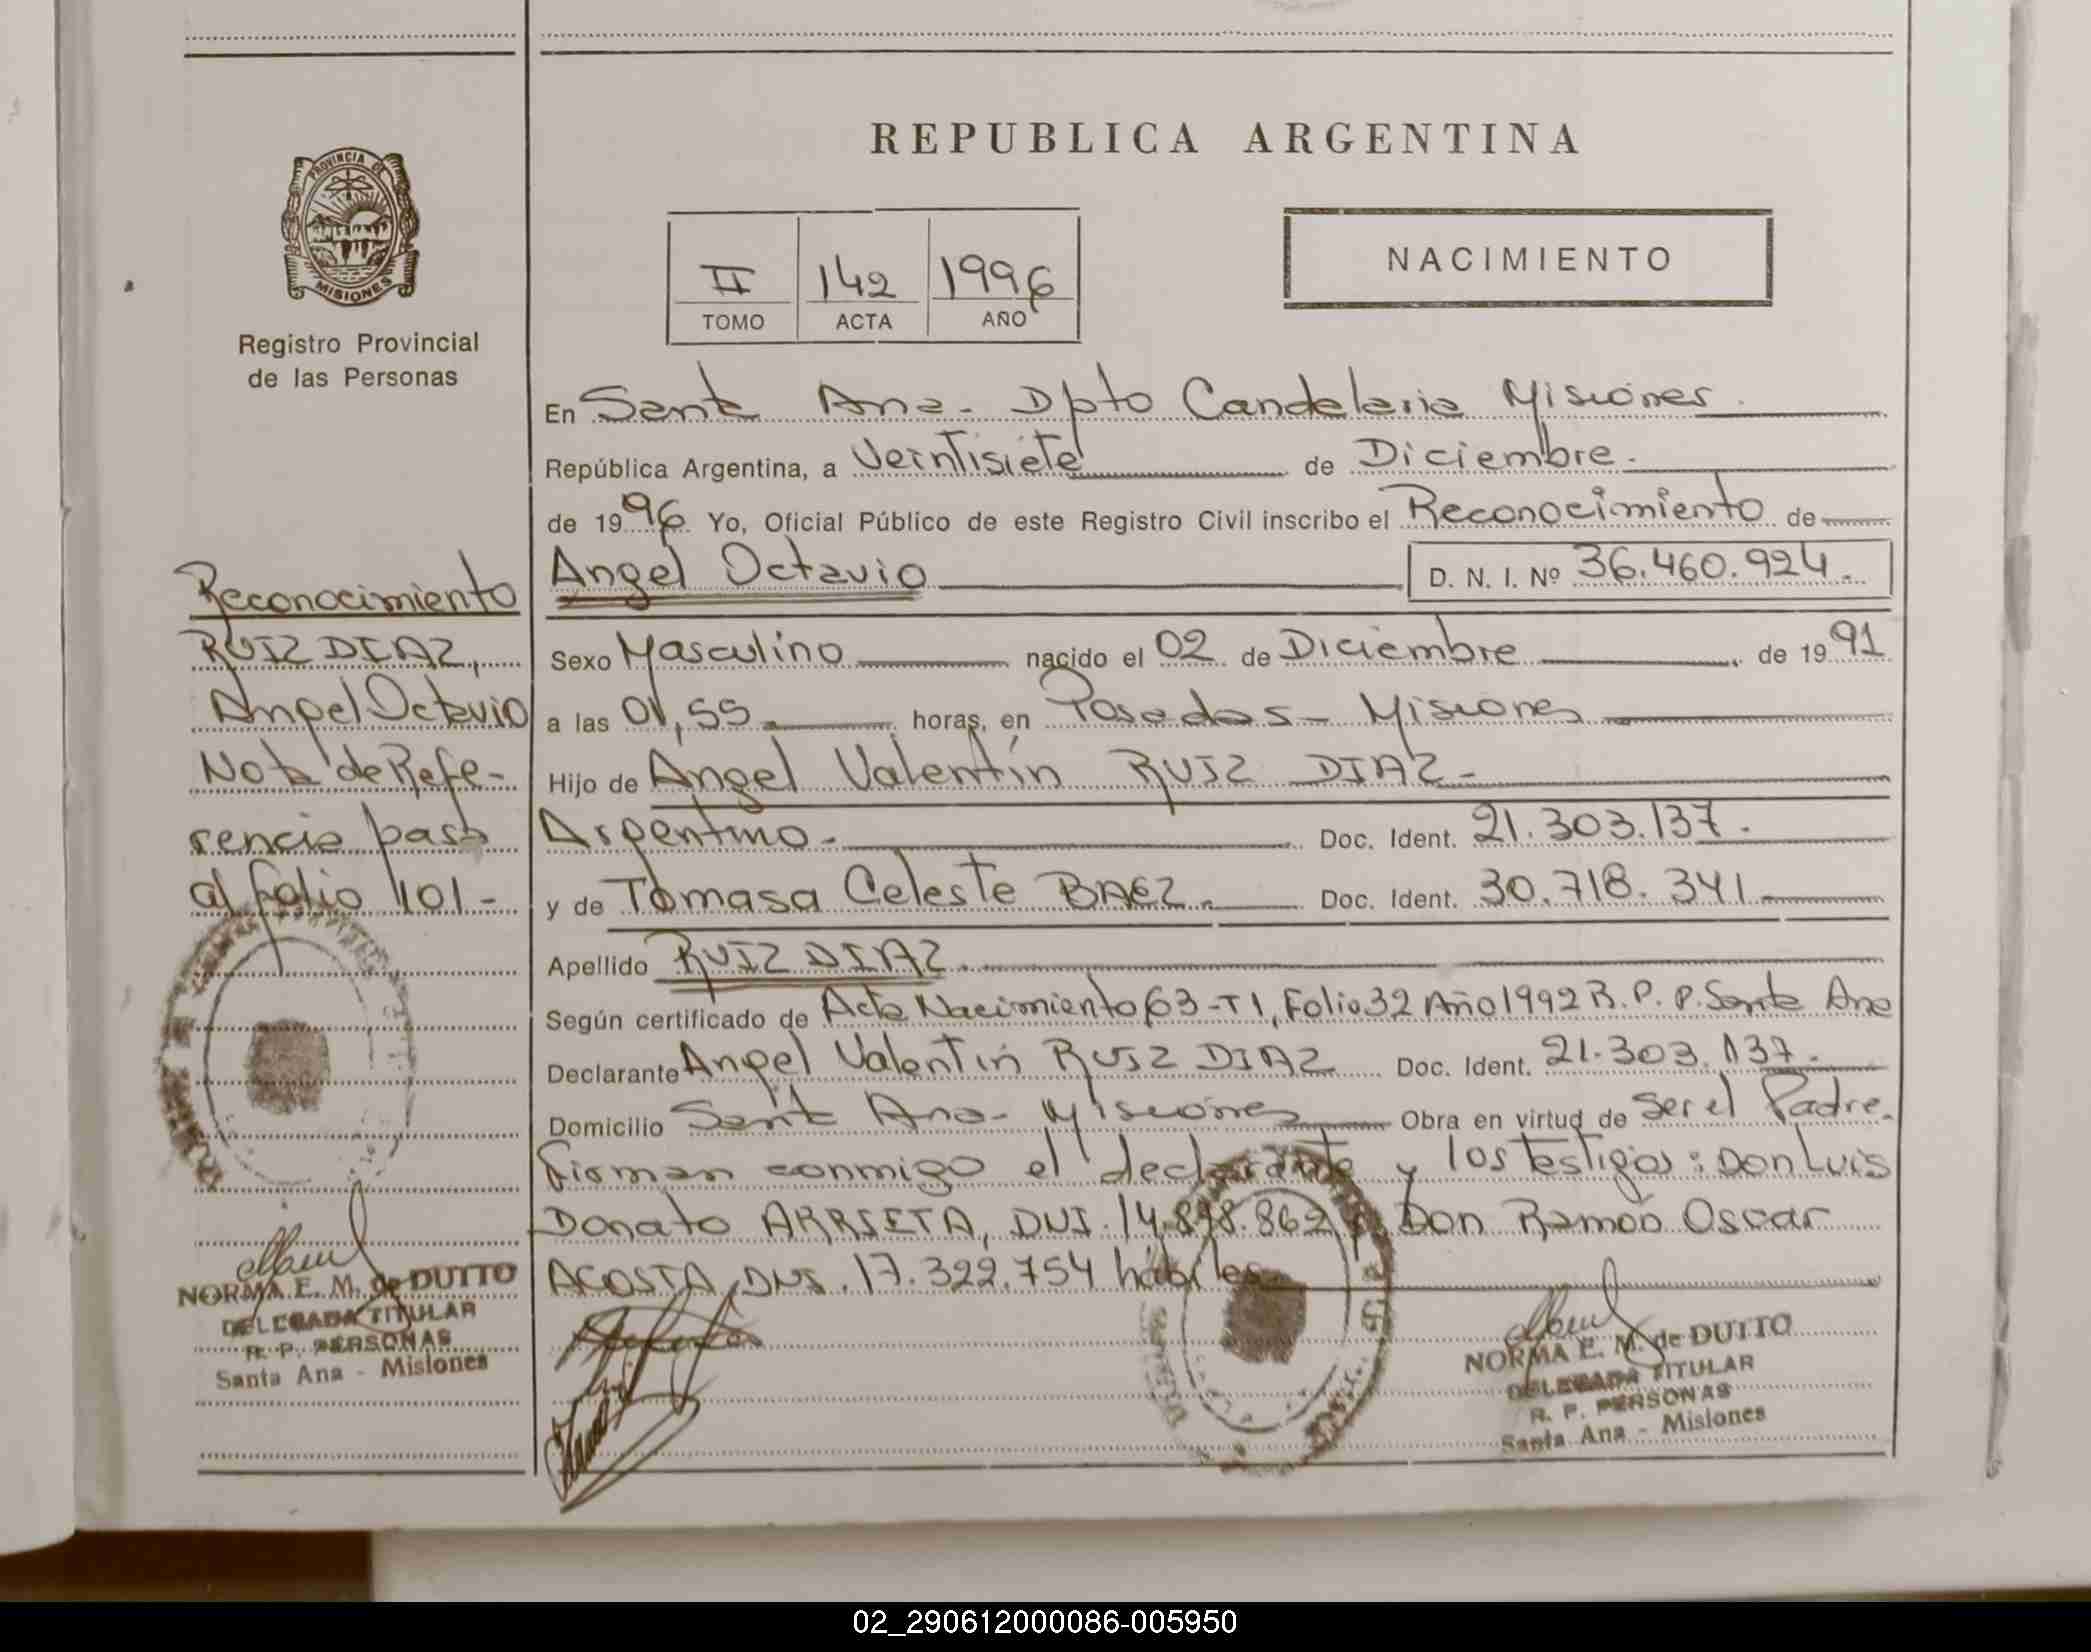 REPUBLICA ARGENTINA
PROVINCIA DE
MISIONES
Registro Provincial
de las Personas
II 142 1996
TOMO ACTA AÑO
NACIMIENTO
En Santa Ana - Dpto Candelaria Misiones
República Argentina, a Veintisiete de Diciembre.
de 1996 Yo, Oficial Público de este Registro Civil inscribo el Reconocimiento de
Angel Octavio D. N. I. Nº 36.460.924.
Sexo Masculino nacido el 02 de Diciembre de 1991
a las 01,55 horas, en Posadas - Misiones
Hijo de Angel Valentín RUIZ DIAZ -
Argentino. Doc. Ident. 21.303.137.
y de Tomasa Celeste BAEZ. Doc. Ident. 30.718.341
Apellido RUIZ DIAZ.
Según certificado de Acta Nacimiento 63-T1, Folio 32 Año 1992 R.P.P. Santa Ana
Declarante Angel Valentín RUIZ DIAZ Doc. Ident. 21.303.137.
Domicilio Santa Ana - Misiones Obra en virtud de ser el Padre.
Firman conmigo el declarante y los testigos: Don Luis
Donato ARRIETA, DNI. 14.898.862 y Don Ramón Oscar
ACOSTA, DNI. 17.322.754 hábiles
NORMA E. M. de DUTTO
DELEGADA TITULAR
R. P. PERSONAS
Santa Ana - Misiones
Reconocimiento
RUIZ DIAZ,
Angel Octavio
Nota de Refe-
rencia pasa
al folio 101-
NORMA E. M. de DUTTO
DELEGADA TITULAR
R. P. PERSONAS
Santa Ana - Misiones
02_290612000086-005950